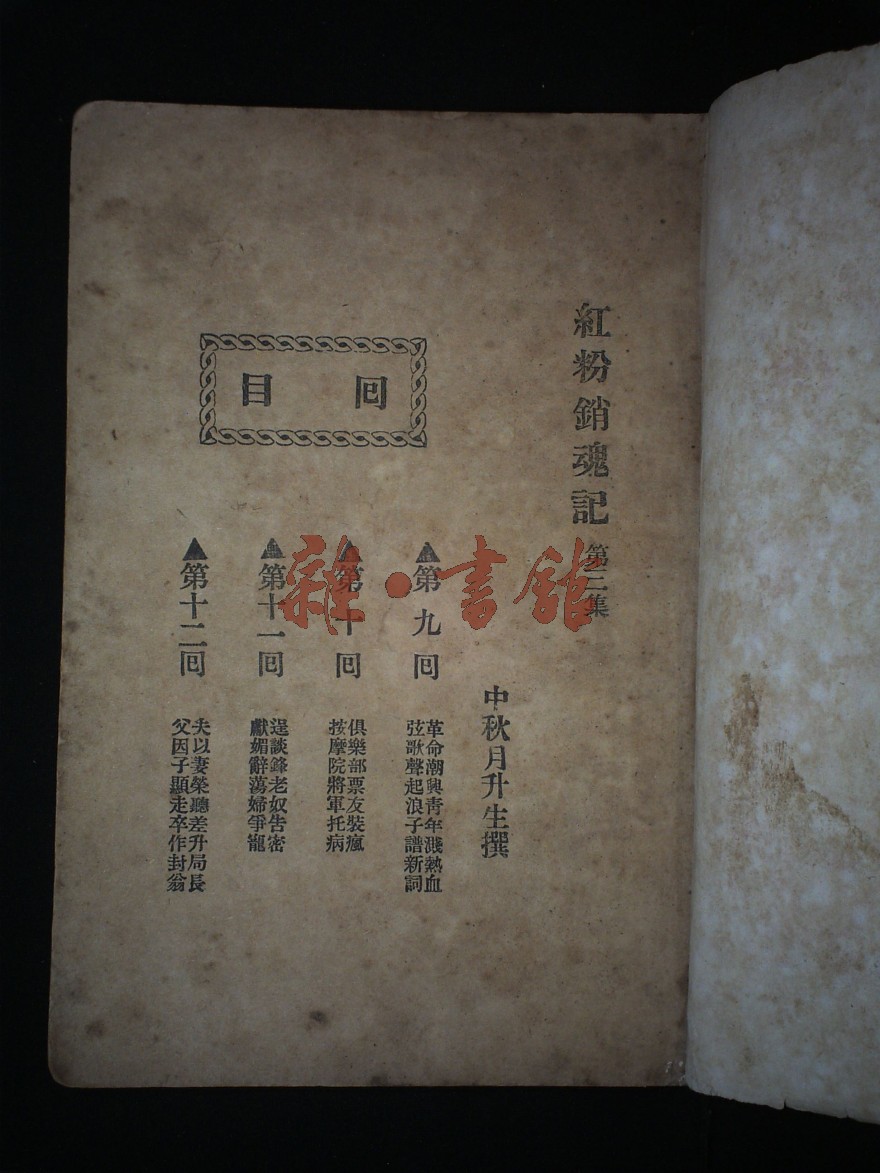 紅粉銷魂記 第三集
中秋月升生撰
回目
▲第九回
革命潮興青年濺熱血
弦歌聲起浪子譜新詞
▲第十回
俱樂部票友裝瘋
按摩院將軍托病
▲第十一回
逞談鋒老奴告密
獻媚辭蕩婦爭寵
▲第十二回
夫以妻榮聽差升局長
父因子顯走卒作封翁
雜·書館